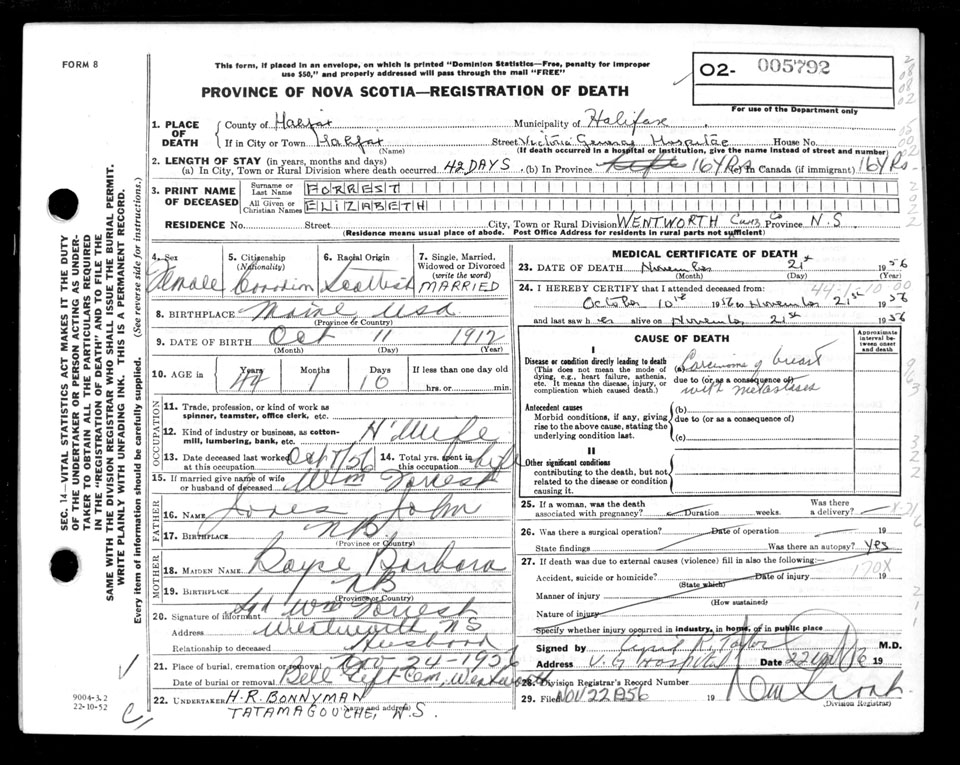 FORM 8
This form, if placed in an envelope, on which is printed "Dominion Statistics—Free, penalty for improper
use $50," and properly addressed will pass through the mail "FREE"
O2- 005792
For use of the Department only
PROVINCE OF NOVA SCOTIA—REGISTRATION OF DEATH
1. PLACE OF DEATH
County of Halifax Municipality of Halifax
If in City or Town Halifax Street Victoria General Hospital House No.
(Name) (If death occurred in a hospital or institution, give the name instead of street and number)
2. LENGTH OF STAY (in years, months and days)
(a) In City, Town or Rural Division where death occurred 42 DAYS (b) In Province 16 YRS (c) In Canada (if immigrant) 16 YRS.
3. PRINT NAME OF DECEASED
Surname or Last Name FORREST
All Given or Christian Names ELIZABETH
RESIDENCE No. Street City, Town or Rural Division WENTWORTH Cumb Co Province N.S
(Residence means usual place of abode. Post Office Address for residents in rural parts not sufficient)
4. Sex Female
5. Citizenship (Nationality) Canadian
6. Racial Origin Scottish
7. Single, Married, Widowed or Divorced (write the word) MARRIED
8. BIRTHPLACE Maine, USA
(Province or Country)
9. DATE OF BIRTH Oct 11 1912
(Month) (Day) (Year)
10. AGE in Years 44 Months 1 Days 10 If less than one day old
hrs. or min.
OCCUPATION
11. Trade, profession, or kind of work as
spinner, teamster, office clerk, etc.
12. Kind of industry or business, as cotton-
mill, lumbering, bank, etc. H'Wife
13. Date deceased last worked at this occupation Oct 7/56
14. Total yrs. spent in this occupation life
15. If married give name of wife
or husband of deceased Wm Forrest
FATHER
16. NAME Jones John
17. BIRTHPLACE NB
(Province or Country)
MOTHER
18. MAIDEN NAME Barbara
19. BIRTHPLACE NB
(Province or Country)
20. Signature of informant Sgd Wm Forrest
Address Wentworth NS
Relationship to deceased Husband
21. Place of burial, cremation or removal Nov 24-1956
Date of burial or removal Cem, Wentworth
22. UNDERTAKER H.R. BONNYMAN
(Name and address)
TATAMAGOUCHE, N.S.
MEDICAL CERTIFICATE OF DEATH
23. DATE OF DEATH November 21st 1956
(Month) (Day) (Year)
24. I HEREBY CERTIFY that I attended deceased from: 44-1-10
October 10th 1956 to November 21st 1956
and last saw her alive on November 21st 1956
CAUSE OF DEATH
Approximate interval between onset and death
I
Disease or condition directly leading to death
(This does not mean the mode of dying, e.g., heart failure, asthenia, etc. It means the disease, injury, or complication which caused death.)
(a) Carcinoma of breast
due to (or as a consequence of)
with metastases
Antecedent causes
Morbid conditions, if any, giving rise to the above cause, stating the underlying condition last.
(b)
due to (or as a consequence of)
(c)
II
Other significant conditions
contributing to the death, but not related to the disease or condition causing it.
25. If a woman, was the death associated with pregnancy? Duration weeks. Was there a delivery?
26. Was there a surgical operation? Date of operation 19
State findings Was there an autopsy? Yes
27. If death was due to external causes (violence) fill in also the following:
170X
Accident, suicide or homicide? Date of injury 19
(State which)
Manner of injury
(How sustained)
Nature of injury
Specify whether injury occurred in industry, in home, or in public place
Signed by Cyril R. Taylor M.D.
Address V.G Hospital Date 22 19
28. Division Registrar's Record Number
29. Filed NOV 22 1956 19
(Division Registrar)
SEC. 14—VITAL STATISTICS ACT MAKES IT THE DUTY
OF THE UNDERTAKER OR PERSON ACTING AS UNDER-
TAKER TO OBTAIN ALL THE PARTICULARS REQUIRED
IN THE "REGISTRATION OF DEATH" AND TO FILE THE
SAME WITH THE DIVISION REGISTRAR WHO SHALL ISSUE THE BURIAL PERMIT.
WRITE PLAINLY WITH UNFADING INK. THIS IS A PERMANENT RECORD.
Every item of information should be carefully supplied. (See reverse side for instructions.)
9004-3.2
22-10-52